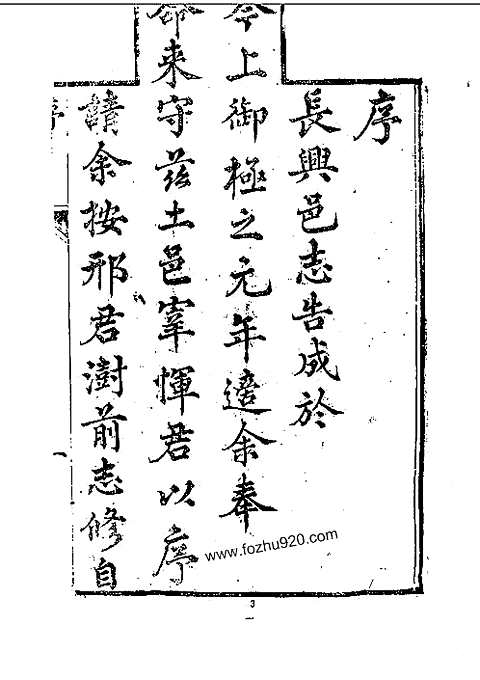 序
長興邑志告成於
今上御極之元年適余奉
命来守茲土邑宰惲君以序
請余按邢君澍前志修自
www.fozhu920.com
3